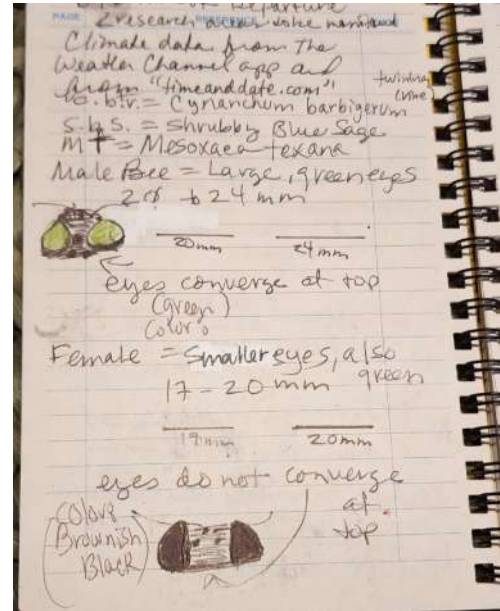 Departure
research
Climate data from The
Weather Channel app and
from "timeanddate.com"
b.b.v. = Cynanchum barbigerum
twining
(vine)
s.b.s. = Shrubby Blue Sage
MT = Mesoxaea texana
Male Bee = Large, green eyes
20 to 24 mm
20mm 24 mm
eyes converge at top
(green)
Color
Female = Smaller eyes, also
green
17 - 20 mm
17mm 20mm
eyes do not converge
at
top
Color
Brownish
Black